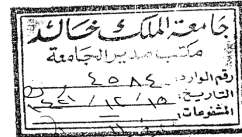 جامعة الملك خالد
مكتب مدير الجامعة
رقم الوارد: ٤٥٨٤
التاريخ: ١٥ / ١٢ / ١٤٢١
المشفوعات: